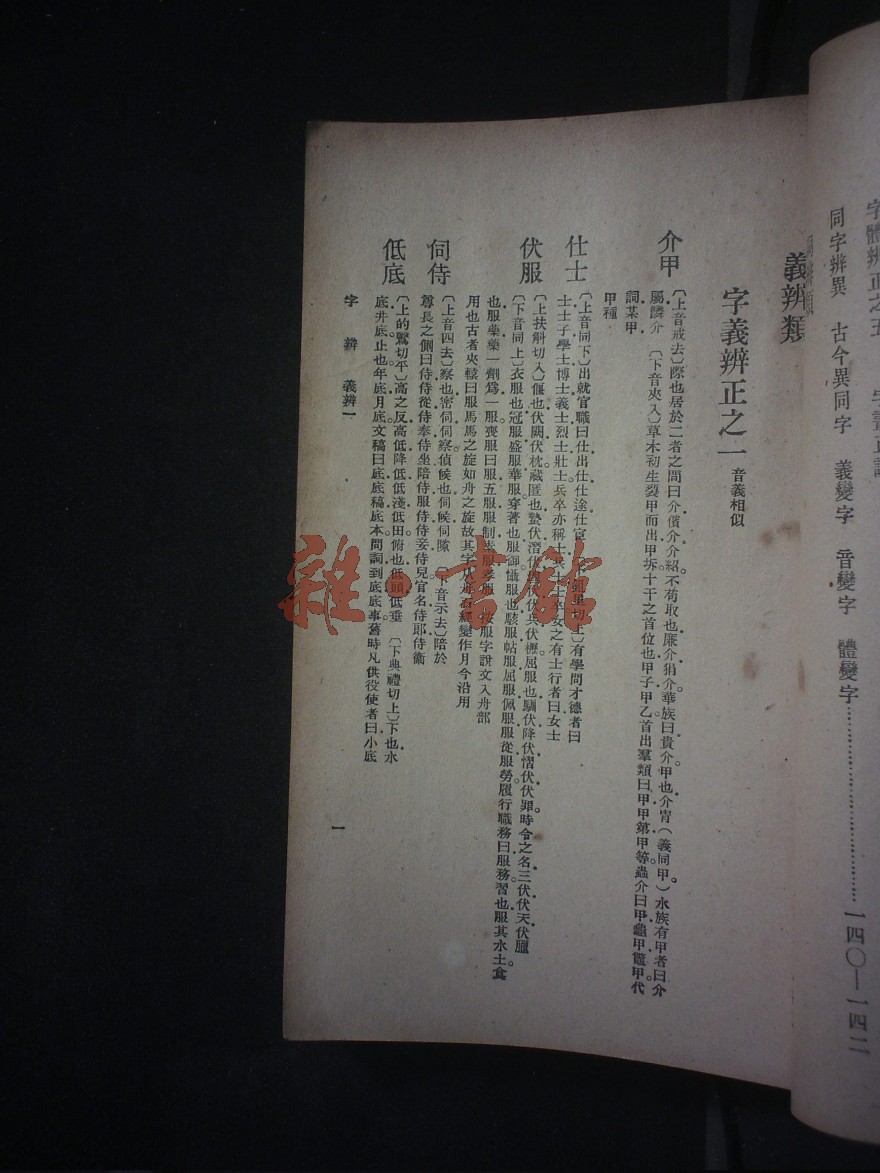 字體辨正之五
同字辨異　古今異同字　義變字　音變字　體變字……一四〇—一四二
義辨類
字義辨正之一 音義相似
介甲
〔上音戒去〕際也居於二者之間曰介價介介紹不苟取也廉介狷介華族曰貴介甲也介冑(義同甲)水族有甲者曰介
屬麟介〔下音夾入〕草木初生裂甲而出甲坼十干之首位也甲子甲乙首出羣類曰甲甲第甲等蟲介曰甲龜甲鼈甲代
詞某甲
甲種
仕士
〔上音同下〕出就官職曰仕出仕仕途仕宦 里切上〕有學問才德者曰
士士子學士博士義士烈士壯士兵卒亦稱士兵士士卒女之有士行者曰女士
伏服
〔上扶斛切入〕偃也伏闕伏枕藏匿也蟄伏潛伏 伏兵伏櫪屈服也馴伏降伏慴伏伏罪時令之名三伏伏天伏臘
〔下音同上〕衣服也冠服盛服華服穿著也服御懾服也駭服帖服屈服佩服服從服勞履行職務曰服務習也服其水土食
也服藥藥一劑爲一服喪服曰服五服服制素服孝服 按服字說文入舟部
用也古者夾轅曰服馬馬之旋如舟之旋故其字从舟石經變作月今沿用
伺侍
〔上音四去〕察也密伺伺察偵候也伺候伺隙〔下音示去〕陪於
尊長之側曰侍侍從侍奉侍坐陪侍服侍侍妾侍兒官名侍郎侍衞
低底
〔上的鷖切平〕高之反高低降低低淺低田俯也低頭低垂〔下典禮切上〕下也水
底井底止也年底月底文稿曰底底稿底本問詞到底底事舊時凡供役使者曰小底
字辨　義辨一
一
雜書館